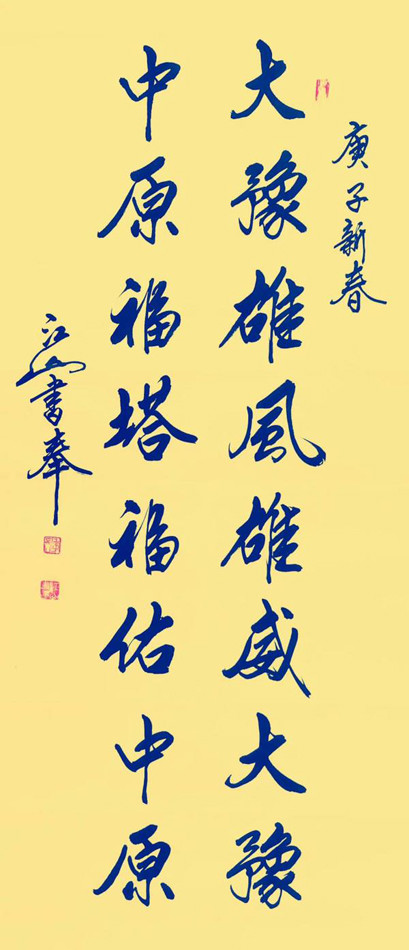 庚子新春
大豫雄風雄威大豫
中原福塔福佑中原
江山書奉